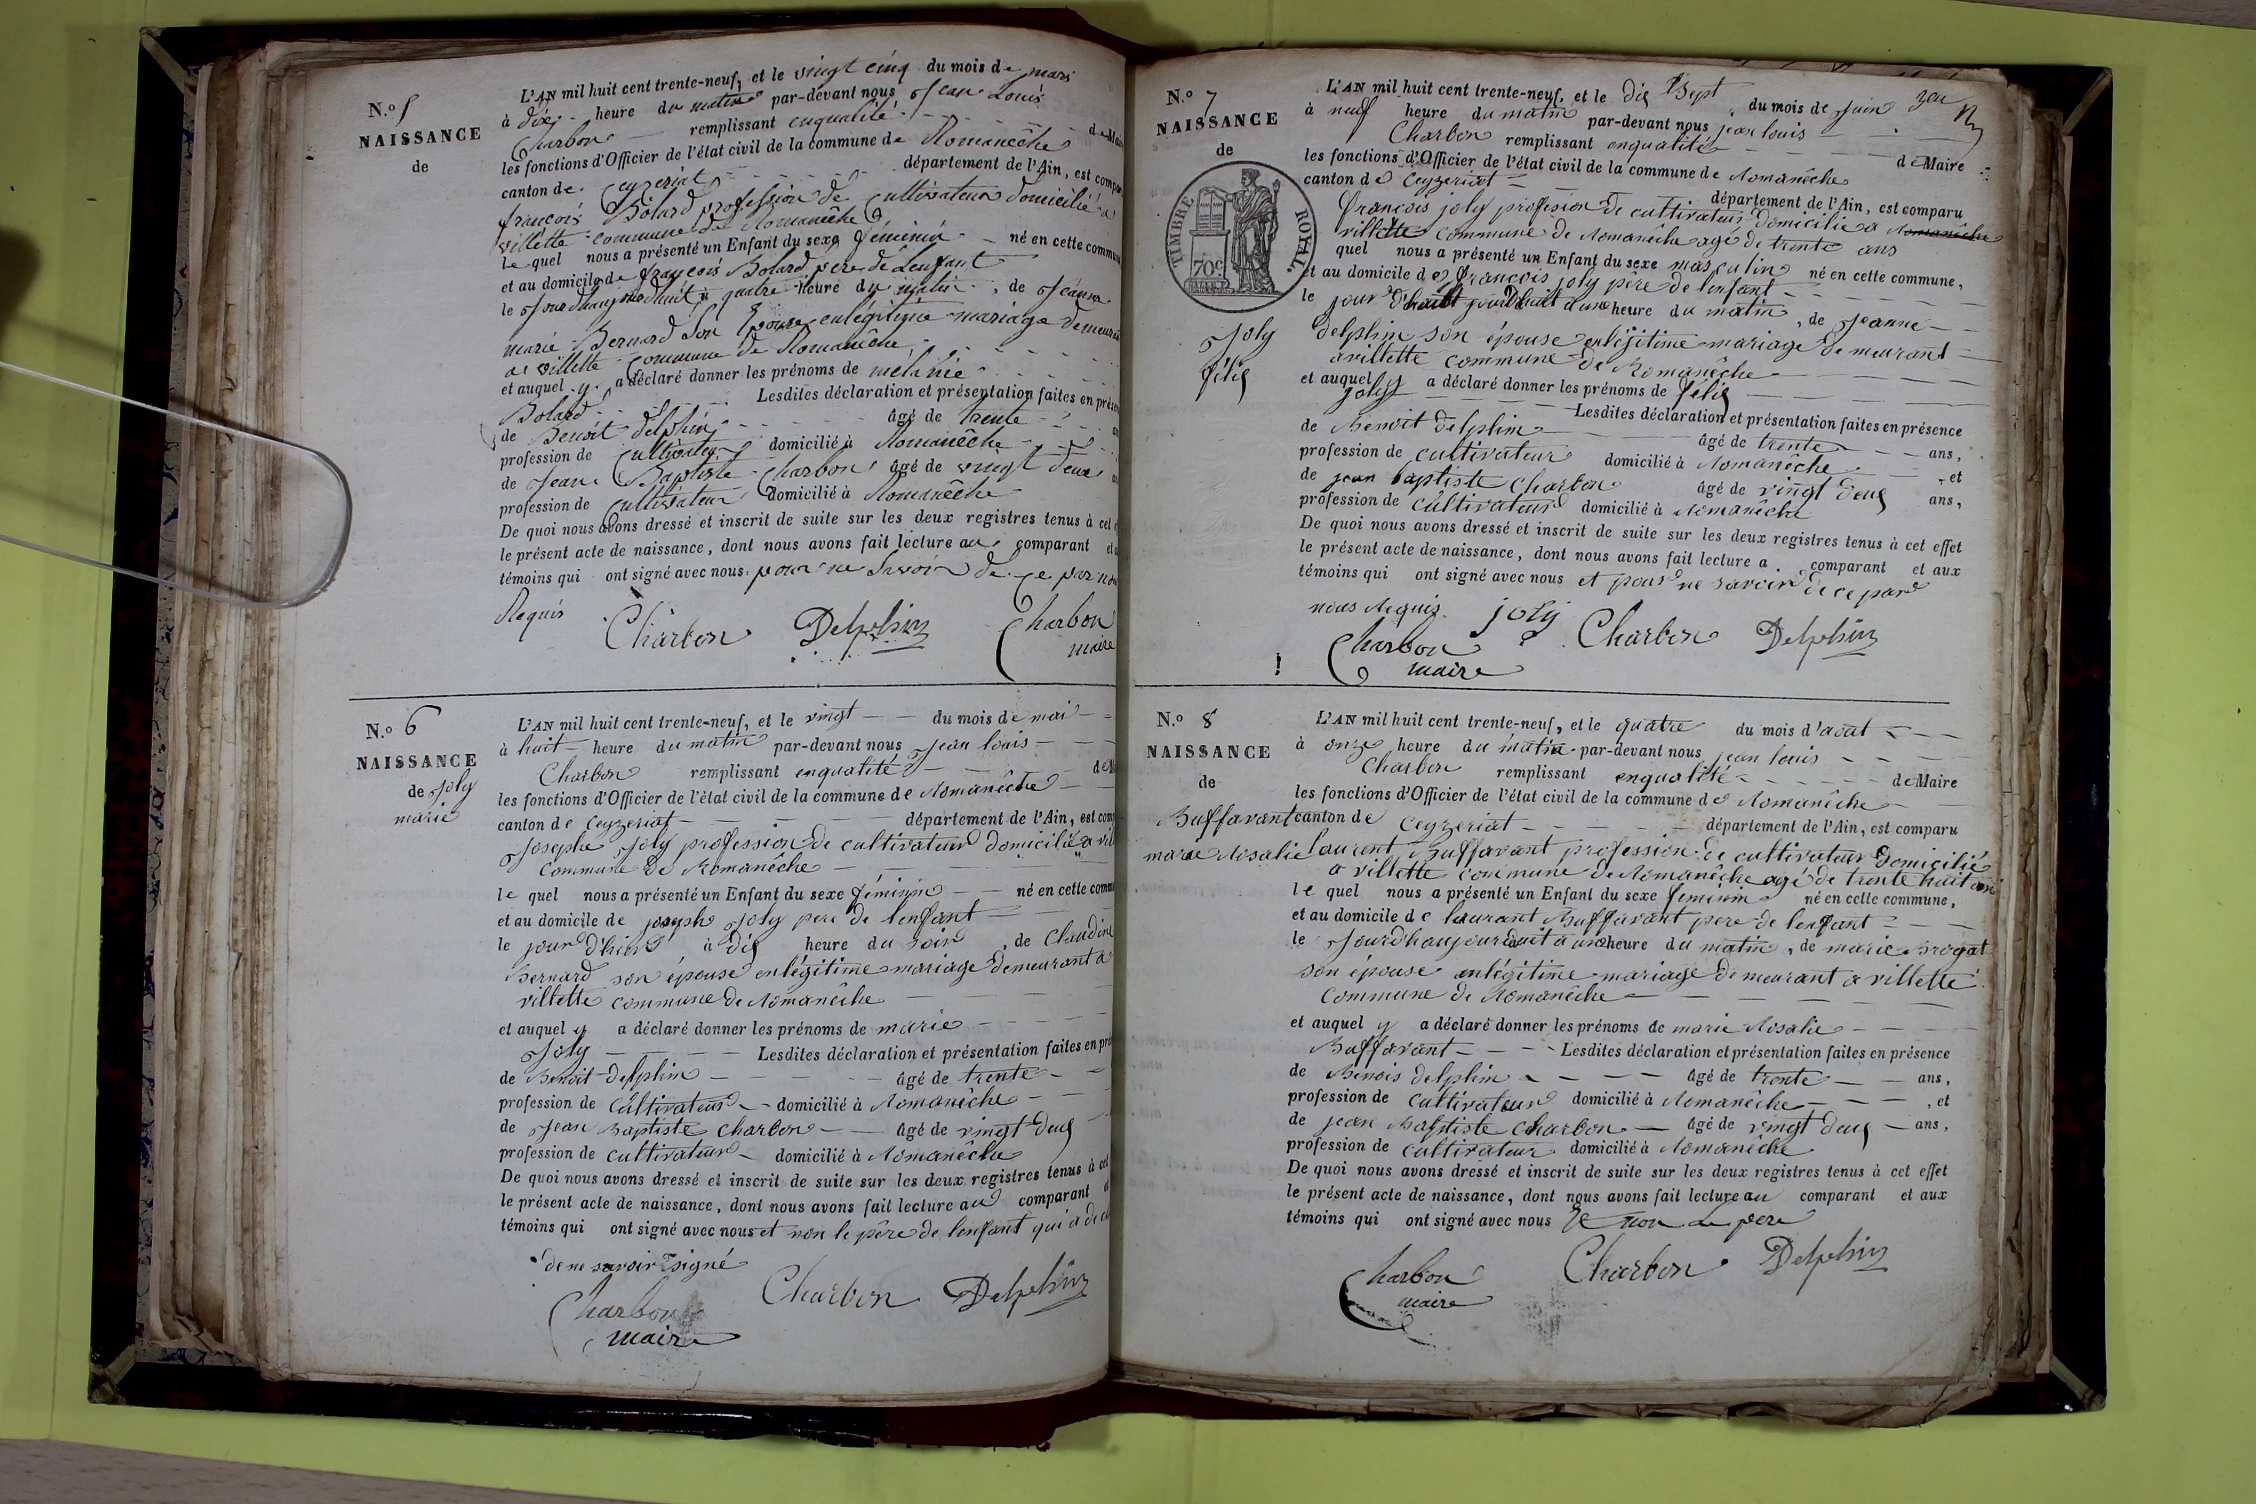 N.o 5
NAISSANCE
de
L'AN mil huit cent trente-neuf, et le vingt cinq du mois de mars
à dix heure du matin par-devant nous Jean Louis
Charbon remplissant enqualité de Mai
les fonctions d'Officier de l'état civil de la commune de Romanêche
canton de Ceyzeriat département de l'Ain, est compar
françois Bolard profession de Cultivateur domicilié a
villette commune de Romanêche
le quel nous a présenté un Enfant du sexe féminin né en cette commun
et au domicile de françois Bolard pere de Lenfant
le Jourdhuy à quatre heure du matin, de Jeanne
marie Bernard Son Epouse enlégitime mariage demeurant
a villette Commune de Romanêche
et auquel y a déclaré donner les prénoms de mélanie
Bolard Lesdites déclaration et présentation faites en prése
de Benoit delphin âgé de trente
profession de Cultivateur domicilié à Romanêche
de Jean Baptiste Charbon âgé de vingt deux
profession de Cultivateur domicilié à Romanêche
De quoi nous avons dressé et inscrit de suite sur les deux registres tenus à cet
le présent acte de naissance, dont nous avons fait lecture au comparant et
témoins qui ont signé avec nous. pour ne Savoir de Ce par nou
Requis
Charbon Delphin Charbon
maire
N.o 6
NAISSANCE
de Joly
marie
L'AN mil huit cent trente-neuf, et le vingt du mois de mai
à huit heure du matin par-devant nous Jean louis
Charbon remplissant enqualité de M
les fonctions d'Officier de l'état civil de la commune de Romanêche
canton de Ceyzeriat département de l'Ain, est com
Josephe Joly profession de cultivateur domicilié a vil
Commune de Romanêche
le quel nous a présenté un Enfant du sexe féminin né en cette comm
et au domicile de joseph Joly pere de lenfant
le jour d'hier à dix heure du soir, de Claudine
Bernard son épouse enlégitime mariage demeurant à
villette commune de Romanêche
et auquel y a déclaré donner les prénoms de marie
Joly Lesdites déclaration et présentation faites en pré
de Benoit delphin âgé de trente
profession de Cultivateur domicilié à Romanêche
de Jean Baptiste Charbon âgé de vingt deux
profession de cultivateur domicilié à Romanêche
De quoi nous avons dressé et inscrit de suite sur les deux registres tenus à cet
le présent acte de naissance, dont nous avons fait lecture au comparant
témoins qui ont signé avec nous et non le père de lenfant qui a de
de ne savoir signé
Charbon Charbon Delphin
maire
N.o 7
NAISSANCE
de
TIMBRE ROYAL.
70c
Joly
félix
L'AN mil huit cent trente-neuf, et le dix Sept du mois de Juin
à neuf heure du matin par-devant nous jean louis
Charbon remplissant enqualité de Maire
les fonctions d'Officier de l'état civil de la commune de Romanêche
canton de Ceyzeriat département de l'Ain, est comparu
françois joly profession de cultivateur domicilié a Romanêche
villette commune de Romanêche agé de trente ans
quel nous a présenté un Enfant du sexe masculin né en cette commune,
et au domicile de françois joly père de lenfant
le jour d'hui à une heure du matin, de Jeanne
delphin son épouse enlégitime mariage demeurant
a villette commune de Romanêche
et auquel y a déclaré donner les prénoms de félix
joly Lesdites déclaration et présentation faites en présence
de Benoit delphin âgé de trente ans,
profession de cultivateur domicilié à Romanêche, et
de jean baptiste Charbon âgé de vingt deux ans,
profession de Cultivateur domicilié à Romanêche
De quoi nous avons dressé et inscrit de suite sur les deux registres tenus à cet effet
le présent acte de naissance, dont nous avons fait lecture a comparant et aux
témoins qui ont signé avec nous et pour ne savoir de ce par
nous Requis joly
Charbon Charbon Delphin
maire
N.o 8
NAISSANCE
de
Buffavant
marie Rosalie
L'AN mil huit cent trente-neuf, et le quatre du mois d'avat
à onze heure du matin par-devant nous jean louis
Charbon remplissant enqualité de Maire
les fonctions d'Officier de l'état civil de la commune de Romanêche
canton de Ceyzeriat département de l'Ain, est comparu
laurent Buffavant profession de cultivateur domicilié
a villette commune de Romanêche agé de trente huit ans
le quel nous a présenté un Enfant du sexe féminin né en cette commune,
et au domicile de laurant Buffavant pere de lenffant
le Jourdhaujourduit a une heure du matin, de marie Brogat
son épouse enlégitime mariage demeurant a villette
commune de Romanêche
et auquel y a déclaré donner les prénoms de marie Rosalie
Buffavant Lesdites déclaration et présentation faites en présence
de Benois delphin âgé de trente ans,
profession de Cultivateur domicilié à Romanêche, et
de jean Baptiste Charbon âgé de vingt deux ans,
profession de Cultivateur domicilié à Romanêche
De quoi nous avons dressé et inscrit de suite sur les deux registres tenus à cet effet
le présent acte de naissance, dont nous avons fait lecture au comparant et aux
témoins qui ont signé avec nous et non Le pere
Charbon Charbon Delphin
maire